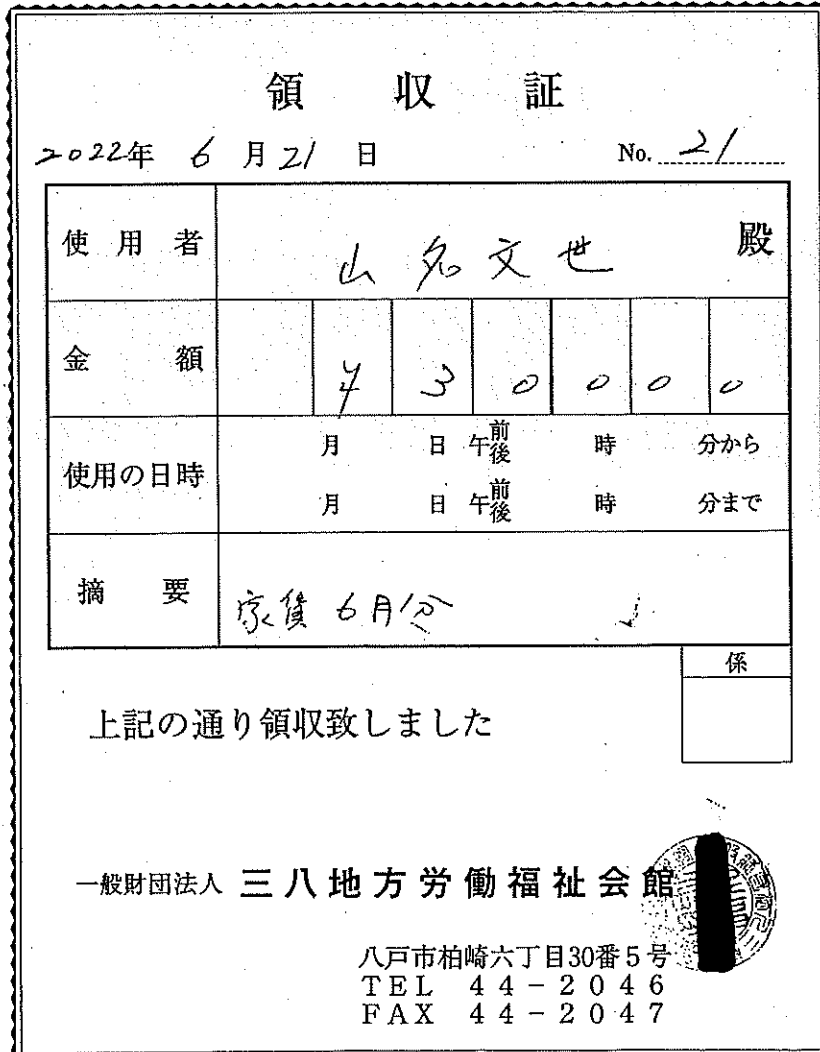 領収証
2022年 6月21日 No. 21
使用者 山名文世 殿
金額 ¥30000
使用の日時 月 日 午前後 時 分から
月 日 午前後 時 分まで
摘要 家賃 6月分
係
上記の通り領収致しました
一般財団法人 三八地方労働福祉会館
八戸市柏崎六丁目30番5号
TEL 44-2046
FAX 44-2047